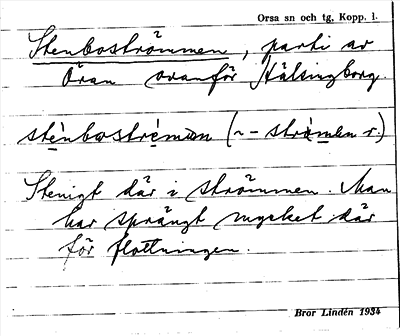 Orsa sn och tg, Kopp. l.
Stenboströmmen, parti av
Oran ovanför Hälsingborg.
stè̀nbostrèmən (~ - strö̀mən r.)
Stenigt där i strömmen. Man
har sprängt mycket där
för flottningen.
Bror Lindén 1934